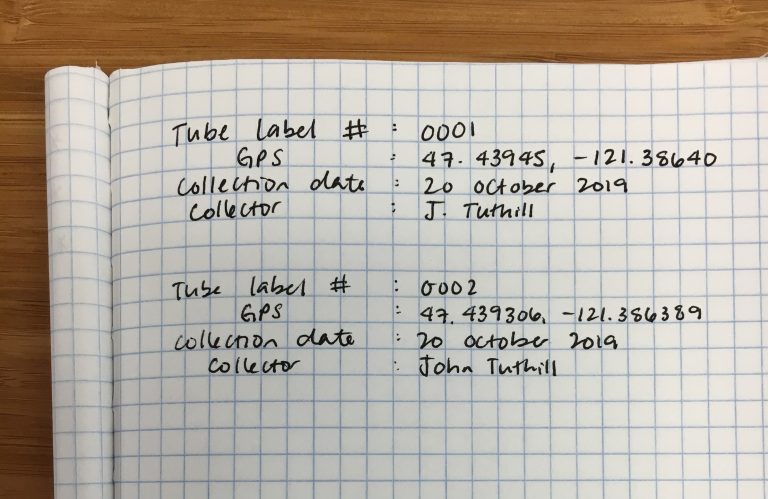 Tube label # : 0001
GPS : 47.43945, -121.38640
Collection date : 20 October 2019
Collector : J. Tuthill
Tube label # : 0002
GPS : 47.439306, -121.386389
Collection date : 20 October 2019
Collector : John Tuthill